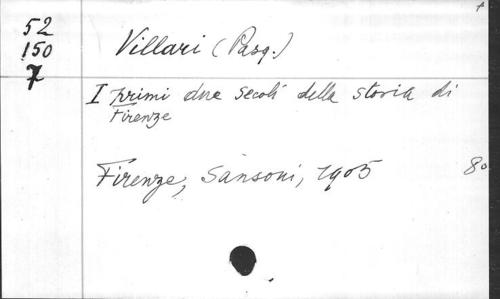 52
150
7
Villari (Pasq.)
I primi due secoli della storia di
Firenze
Firenze, Sansoni, 1905 8°